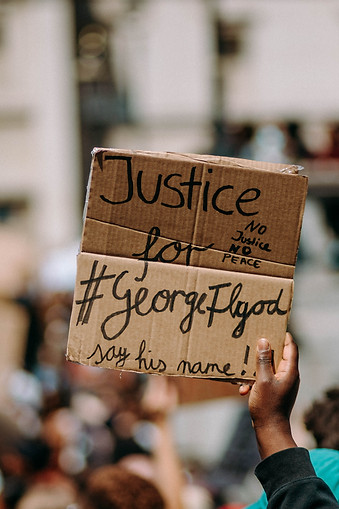 Justice
for
NO
Justice
NO
PEACE
#GeorgeFloyd
say his name!